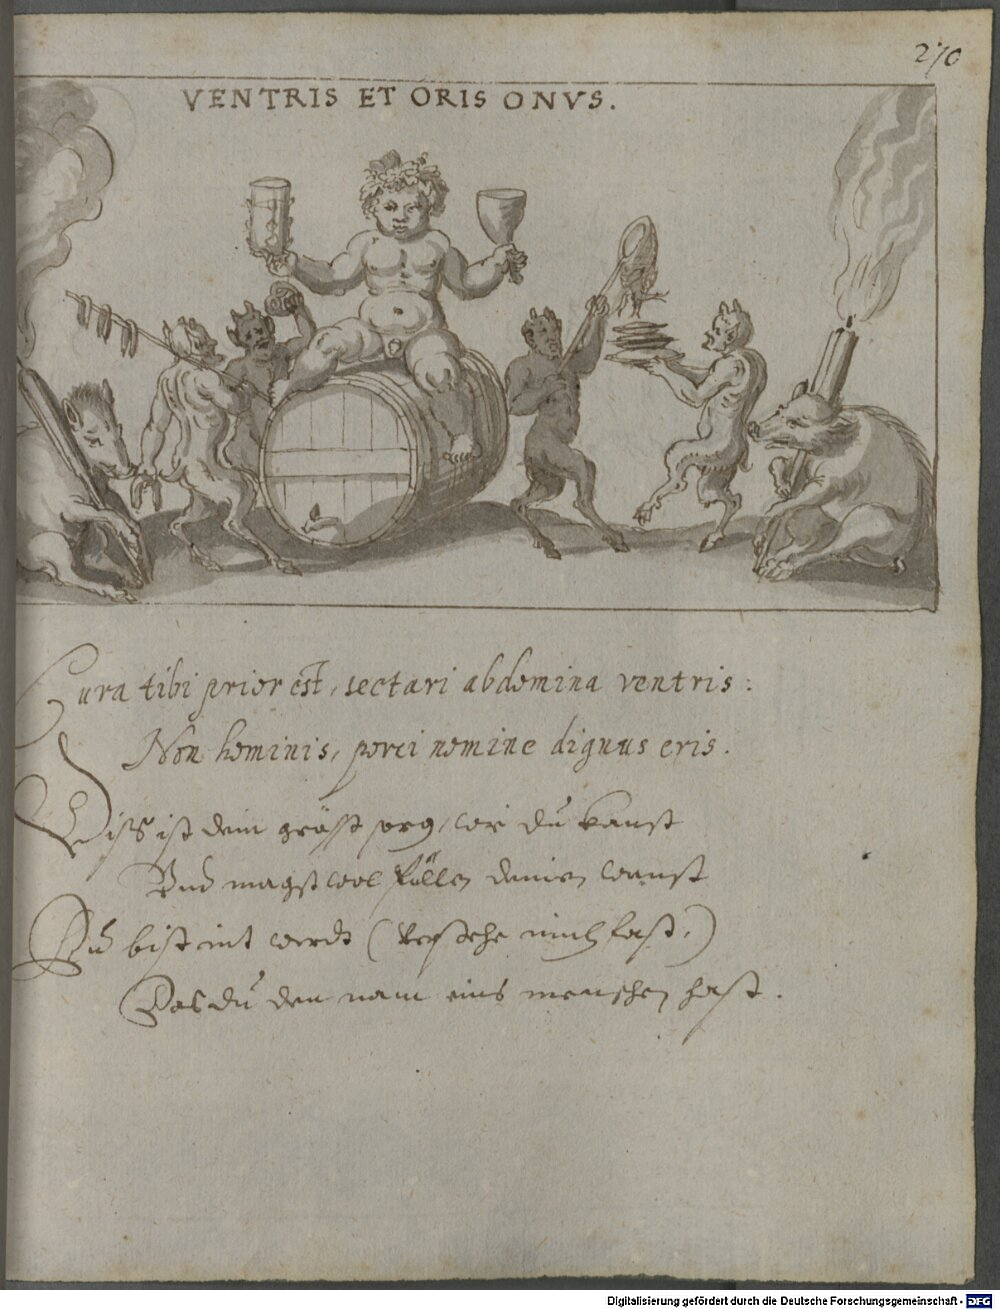 270
VENTRIS ET ORIS ONVS.
Cura tibi prior est, sectari abdomina ventris:
Non hominis, porci nomine dignus eris.
Diss ist dein gröst sorg, wie du kanst
Vnd magst wol füllen deinen wanst
Du bist nit werdt (verstehe mich fast,)
Das du den nam eins menschen hast.
Digitalisierung gefördert durch die Deutsche Forschungsgemeinschaft - DFG